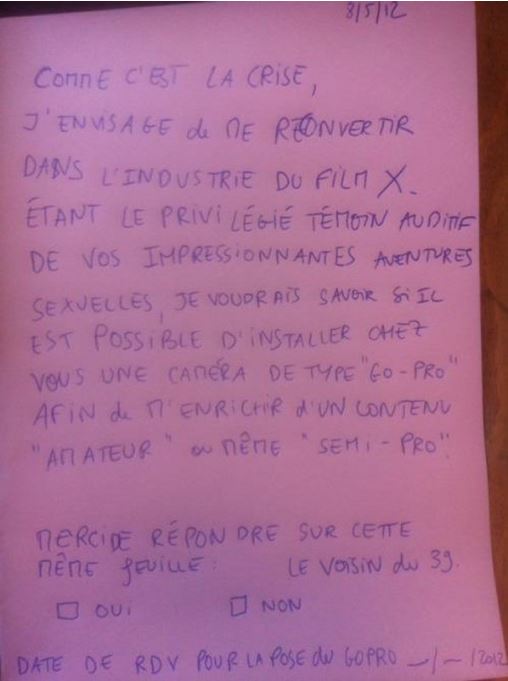 8/5/12
COMME C'EST LA CRISE,
J'ENVISAGE de ME RECONVERTIR
DANS L'INDUSTRIE DU FILM X.
ÉTANT LE PRIVILÉGIÉ TÉMOIN AUDITIF
DE VOS IMPRESSIONNANTES AVENTURES
SEXUELLES, JE VOUDRAIS SAVOIR SI IL
EST POSSIBLE D'INSTALLER CHEZ
VOUS UNE CAMÉRA DE TYPE "GO-PRO"
AFIN de M'ENRICHIR d'UN CONTENU
"AMATEUR" ou MÊME "SEMI-PRO".
MERCI DE RÉPONDRE SUR CETTE
MÊME FEUILLE: LE VOISIN du 3g.
☐ OUI ☐ NON
DATE DE RDV POUR LA POSE du GOPRO _/_/2012